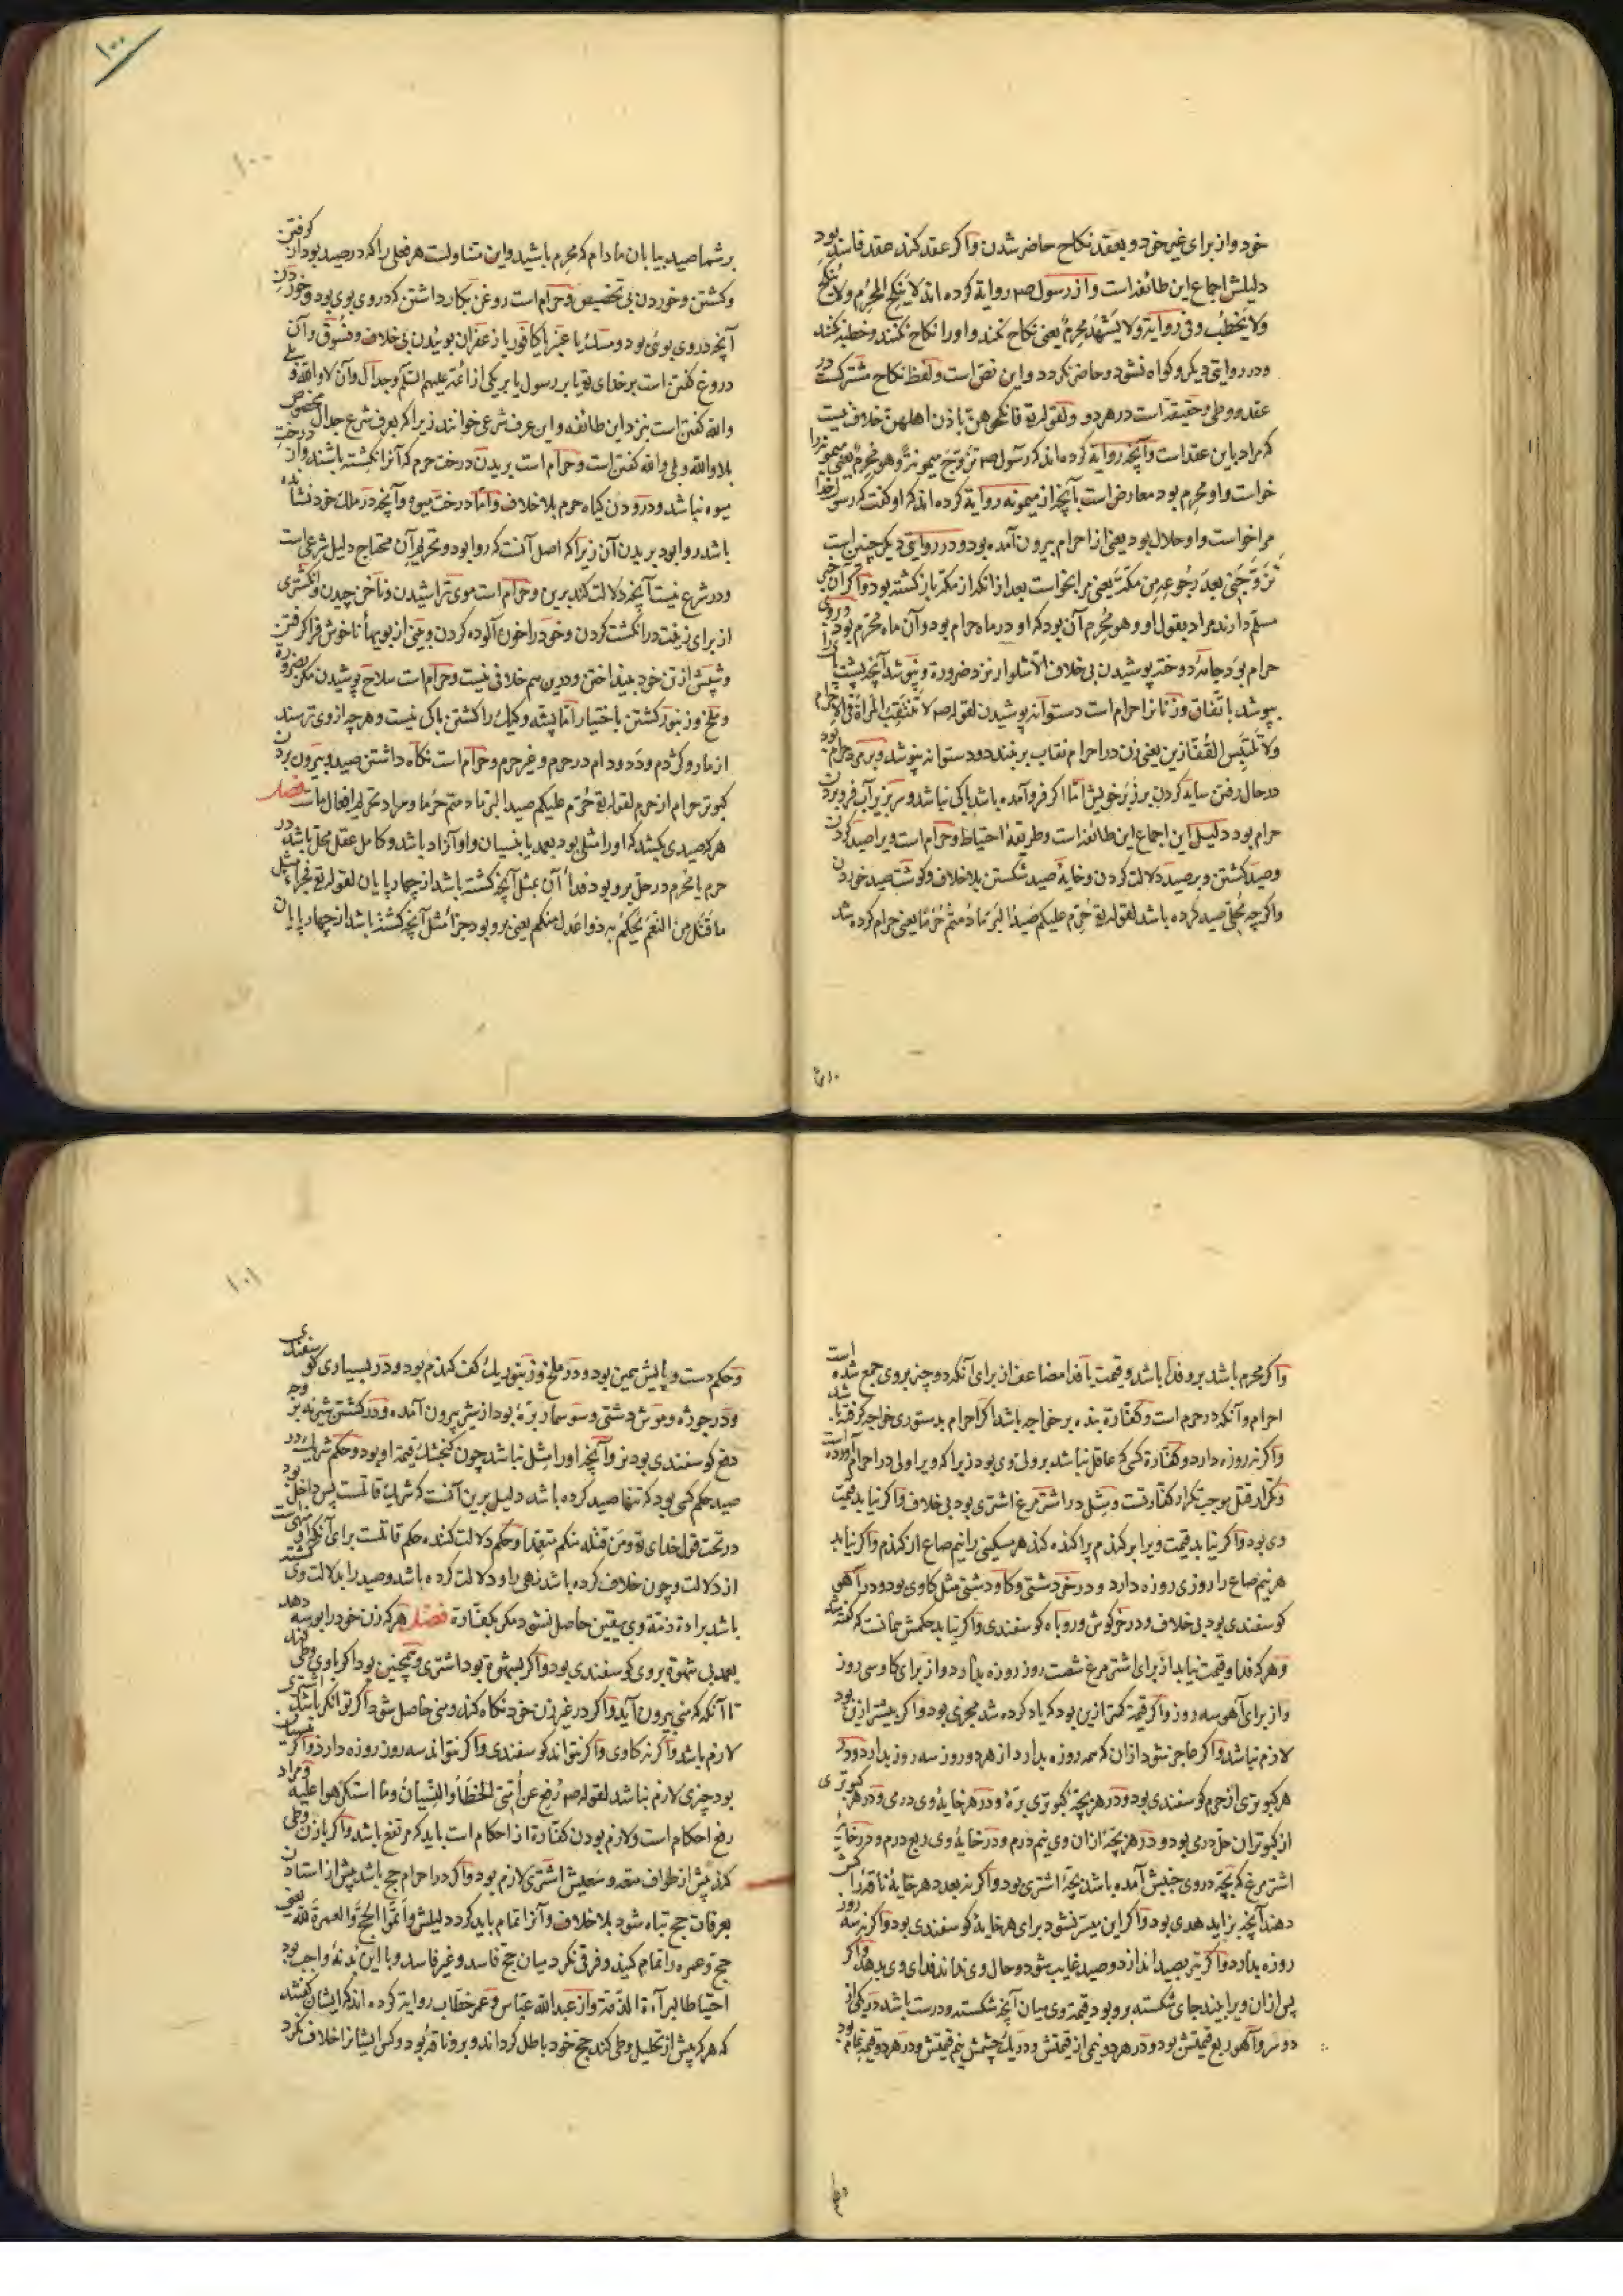 خود و از برای غیر خود و بعقد نکاح حاضر شدن و اکر عقد کند عقد فاسد بود
دلیلش اجماع این طائفه است و از رسول صم روایة کرده اند لا یَنکِح المُحرِم ولا یُنکِح
ولا یَخطُب وفی روایة ولا یَشهَد مُحرِمٌ یعنی نکاح نکند و او را نکاح نکنند و خطبه نکند
و در روایتی دیکر و کواه نشود و حاضر نکردد و این نص است و لفظ نکاح مشترکست در
عقد و وطی و حقیقة است در هر دو و لقوله تع فانکحوهنّ باذن اهلهنّ خلاف نیست
که مراد باین عقد است و آنچه روایة کرده اند که رسول صم تزوّج میمونةً و هو مُحرِمٌ یعنی میمونه را
خواست و او محرم بود معارض است بآنچه از میمونه روایة کرده اند که او کفت که رسول خدا
مرا خواست و او حلال بود یعنی از احرام بیرون آمده بود و در روایتی دیکر چنین است
تزوّجَنی بعدَ رجوعِه مِن مکّةَ یعنی مرا بخواست بعد از آنکه از مکه باز کشته بود و اکر آن خبر
مسلم دارند مراد بقول او و هو مُحرِم آن بود که او در ماه حرام بود و آن ماه محرم بود
حرام بود جامهٔ دوخته پوشیدن بی خلاف الا شلوار نزد ضرورة و نپوشد آنچه پشت پا را
بپوشد باتفاق و زنانرا حرام است دستوانه پوشیدن لقوله صم لا تَنتَقِبُ المَرأةُ فی الاحرام
ولا تَلبَس القُفّازین یعنی زن در احرام نقاب بر نبندد و دستوانه نپوشد و بر مرد حرام بود
در حال رفتن سایه کردن بر زبر خویش اما اکر فرو آمده باشد باکی نباشد و سر بزیر آب فرو بردن
حرام بود دلیل این اجماع این طائفه است و طریقهٔ احتیاط و حرام است ویرا صید کردن
و صید کشتن و بر صید دلالت کردن و خایهٔ صید شکستن بلا خلاف و کوشت صید خوردن
و اکرچه مُحِلّی صید کرده باشد لقوله تع حُرّم علیکم صَیدُ البَرّ ما دُمتُم حُرُماً یعنی حرام کرده شد
۱۰۰
بر شما صید بیابان مادام که محرم باشید و این متناولست هر فعلی را که در صید بود از کرفتن
و کشتن و خوردن بی تخصیص و حرام است روغن بکار داشتن که در وی بوی بود و خوردن
آنچه در وی بوئی بود و مسک یا عنبر یا کافور یا زعفران بوئیدن بی خلاف و فسوق و آن
دروغ کفتن است بر خدای تع یا بر رسول یا بر یکی از ائمّه علیهم السلم و جدال و آن لا والله و بلی
والله کفتن است بنزد این طائفه و این عرف شرعی خوانند زیرا که بعرف شرع جدال مخصوص
بلا والله و بلی والله کفتن است و حرام است بریدن درخت حرم که آنرا نکشته باشند و از درخت
میوه نباشد و درودن کیاه حرم بلا خلاف و اما درخت میوه و آنچه در ملک خود نشانده
باشد روا بود بریدن آن زیرا که اصل آنست که روا بود و تحریم آن محتاج دلیل شرعی است
و در شرع نیست آنچه دلالت کند برین و حرام است موی تراشیدن و ناخن چیدن و انکشتری
از برای زینت در انکشت کردن و خود را خون آلوده کردن و بینی از بویهاء ناخوش فرا کرفتن
و شپش از تن خود بینداختن و درین هم خلافی نیست و حرام است سلاح پوشیدن مکر بضرورة
و ملخ و زنبور کشتن باختیار اما پشه و کیک را کشتن باکی نیست و هرچه از وی ترسند
از مار و کژدم و دد و دام در حرم و غیر حرم و حرام است نکاه داشتن صید و بیرون بردن
کبوتر حرام از حرم لقوله تع حُرّم علیکم صید البر ما دمتم حرُما و مراد تحریم افعال ماست فصل
هر که صیدی بکشد که او را مثلی بود بعمد یا بنسیان و او آزاد باشد و کامل عقل محل باشد در
حرم یا محرم در حل برو بود فداء آن بمثل آنچه کشته باشد از چهارپایان لقوله تع فجزاءٌ مثل
ما قَتَل مِن النَّعَم یَحکُم به ذوا عدل منکم یعنی برو بود جزاءٌ مثل آنچه کشته باشد از چهارپایان
و اکر محرم باشد برو فدا باشد و قیمت یا فدا مضاعف از برای آنکه دو چیز بر وی جمع شده است
احرام و آنکه در حرم است و کفّارة بنده بر خواجه باشد اکر احرام بدستوری خواجه کرفته باشد
و اکر نه روزه دارد و کفّارة کسی که عاقل نباشد بر ولی وی بود زیرا که ویرا ولی در احرام آورده است
و تکرار قتل موجب تکرار کفّارتست و مثل در اشترمرغ اشتری بود بی خلاف و اکر نیابد قیمت
وی بود و اکر نیابد قیمت ویرا بر کندم پراکنده کند هر مسکینی را نیم صاع از کندم و اکر نیابد
هر نیم صاع را روزی روزه دارد و در خر دشتی و کاو دشتی مثل کاوی بود و در آهو
کوسفندی بود بی خلاف و در خرکوش و روباه کوسفندی و اکر نیابد حکمش همانست که کفته شد
و هر که فدا و قیمت نیابد از برای اشترمرغ شصت روز روزه بدارد و از برای کاو سی روز
و از برای آهو سه روز و اکر قیمة کمتر ازین بود که یاد کرده شد مجزی بود و اکر بیشتر ازین بود
لازم نباشد و اکر عاجز نشود از آن که همه روزه بدارد از هر دو روز سه روز بدارد و در
هر کبوتری از حرم کوسفندی بود و در هر بچهٔ کبوتری برهٔ و در هر خایهٔ وی درمی و در هر کبوتری
از کبوتران حل درمی بود و در هر بچهٔ از آن وی نیم درم و در خایهٔ وی ربع درم و در خایهٔ
اشترمرغ که بچه در وی جنبش آمده باشد بچهٔ اشتری بود و اکر نه بعدد هر خایهٔ ناقهٔ را کشن
دهند آنچه بزاید هدی بود و اکر این میسّر نشود برای هر خایهٔ کوسفندی بود و اکر نه سه روز
روزه بدارد و اکر تیر بصید اندازد و صید غایب شود و حال وی نداند فدای وی بدهد و اکر
پس از آن ویرا ببیند جای شکسته برو بود قیمة وی میان آنچه شکسته و درست باشد در یکی از
دو سرو آهو ربع قیمتش بود و در هر دو نیمی از قیمتش و در یک چشمش نیم قیمتش و در هر دو قیمة تمام بود
۱۰۱
و حکم دست و پایش همین بود و در ملخ و زنبور یک کف کندم بود و در بسیاری کوسفندی
و در جوژه و موش دشتی و سوسمار برهٔ بود از شیر بیرون آمده و در کشتن شیر نه بر وجه
دفع کوسفندی بود نر و آنچه او را مثل نباشد چون کنجشک قیمة او بود و حکم شریک در
صید حکم کسی بود که تنها صید کرده باشد دلیل برین آنست که شریک قاتلست پس داخل بود
در تحت قول خدای تع ومَن قتله منکم متعمّداً و حکم دلالت کننده حکم قاتلست برای آنکه او منهی است
از دلالت و چون خلاف کرده باشد نهی را و دلالت کرده باشد و صید را بدلالت وی کشته
باشد براءة ذمة وی بیقین حاصل نشود مکر بکفّارة فصل هر که زن خود را بوسه دهد
بعمد بی شهوة بر وی کوسفندی بود و اکر بشهوة بود اشتری و همچنین بود اکر با وی وطی کند
تا آنکه که منی بیرون آید و اکر در غیر زن خود نکاه کند و منی حاصل شود اکر توانکر باشد اشتری
لازم باشد و اکر نه کاوی و اکر نتواند کوسفندی و اکر نتواند سه روز روزه دارد و اکر بنسیان
بود چیزی لازم نباشد لقوله صم رُفِع عن اُمّتی الخَطَأُ والنِّسیانُ وما استُکرِهوا علیه و مراد
رفع احکام است و لازم بودن کفّارة از احکام است باید که مرتفع باشد و اکر با زن وطی
کند پیش از طواف متعه و سعیش اشتری لازم بود و اکر در احرام حج باشد پیش از استادن
بعرفات حج تباه شود بلا خلاف و آنرا تمام باید کرد دلیلش واَتِمّوا الحجَّ والعمرةَ لله یعنی
حج و عمره را تمام کنید و فرقی نکرد میان حج فاسد و غیر فاسد و با این بُدنهٔ واجب بود
احتیاطا لبراءة الذّمّة و از عبد الله عباس و عمر خطّاب روایة کرده اند که ایشان کفتند
که هر که پیش از تحلیل وطی کند حج خود باطل کرداند و برو ناقهٔ بود و کس ایشانرا خلاف نکرد